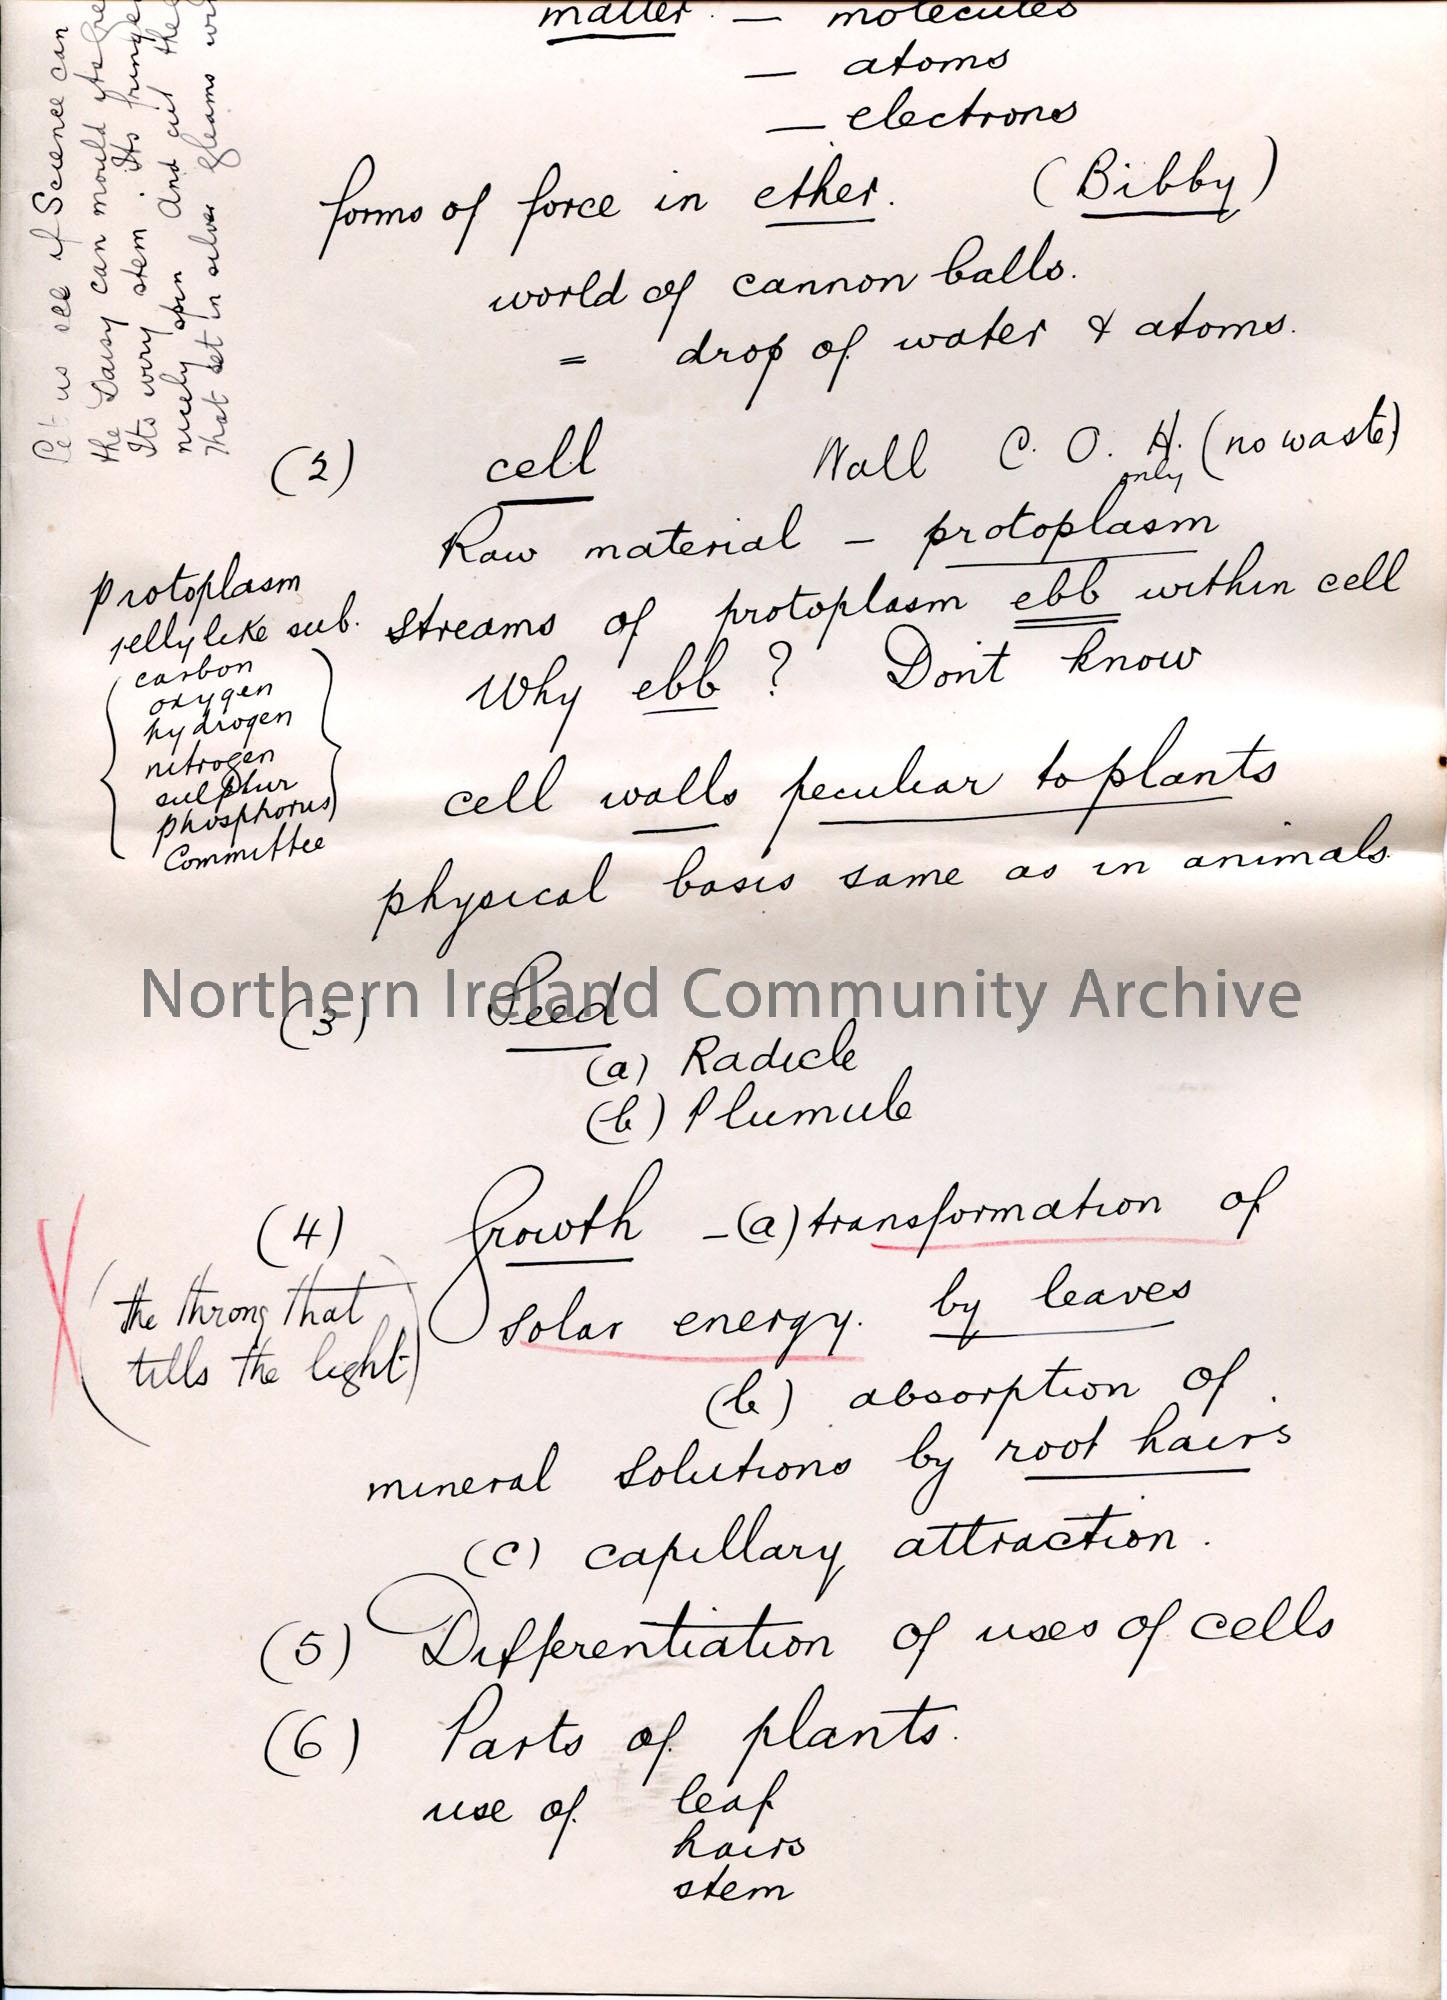 matter. — molecules
— atoms
— electrons
forms of force in ether. (Bibby)
world of cannon balls.
= drop of water & atoms.
Let us see if Science can
the Daisy can mould its
Its wiry stem. Its
nicely spin And cut the
That set in silver gleams
(2) cell Wall C. O. H. (no waste)
only
Raw material – protoplasm
streams of protoplasm ebb within cell
Why ebb? Dont know
cell walls peculiar to plants
physical basis same as in animals.
Protoplasm
jelly like sub.
carbon
oxygen
hydrogen
nitrogen
sulphur
phosphorus
Committee
Northern Ireland Community Archive
(3) Seed
(a) Radicle
(b) Plumule
(4) Growth – (a) transformation of
solar energy. by leaves
(the throng that
tills the light)
(b) absorption of
mineral solutions by root hairs
(c) capillary attraction.
(5) Differentiation of uses of cells
(6) Parts of plants.
use of leaf
hairs
stem